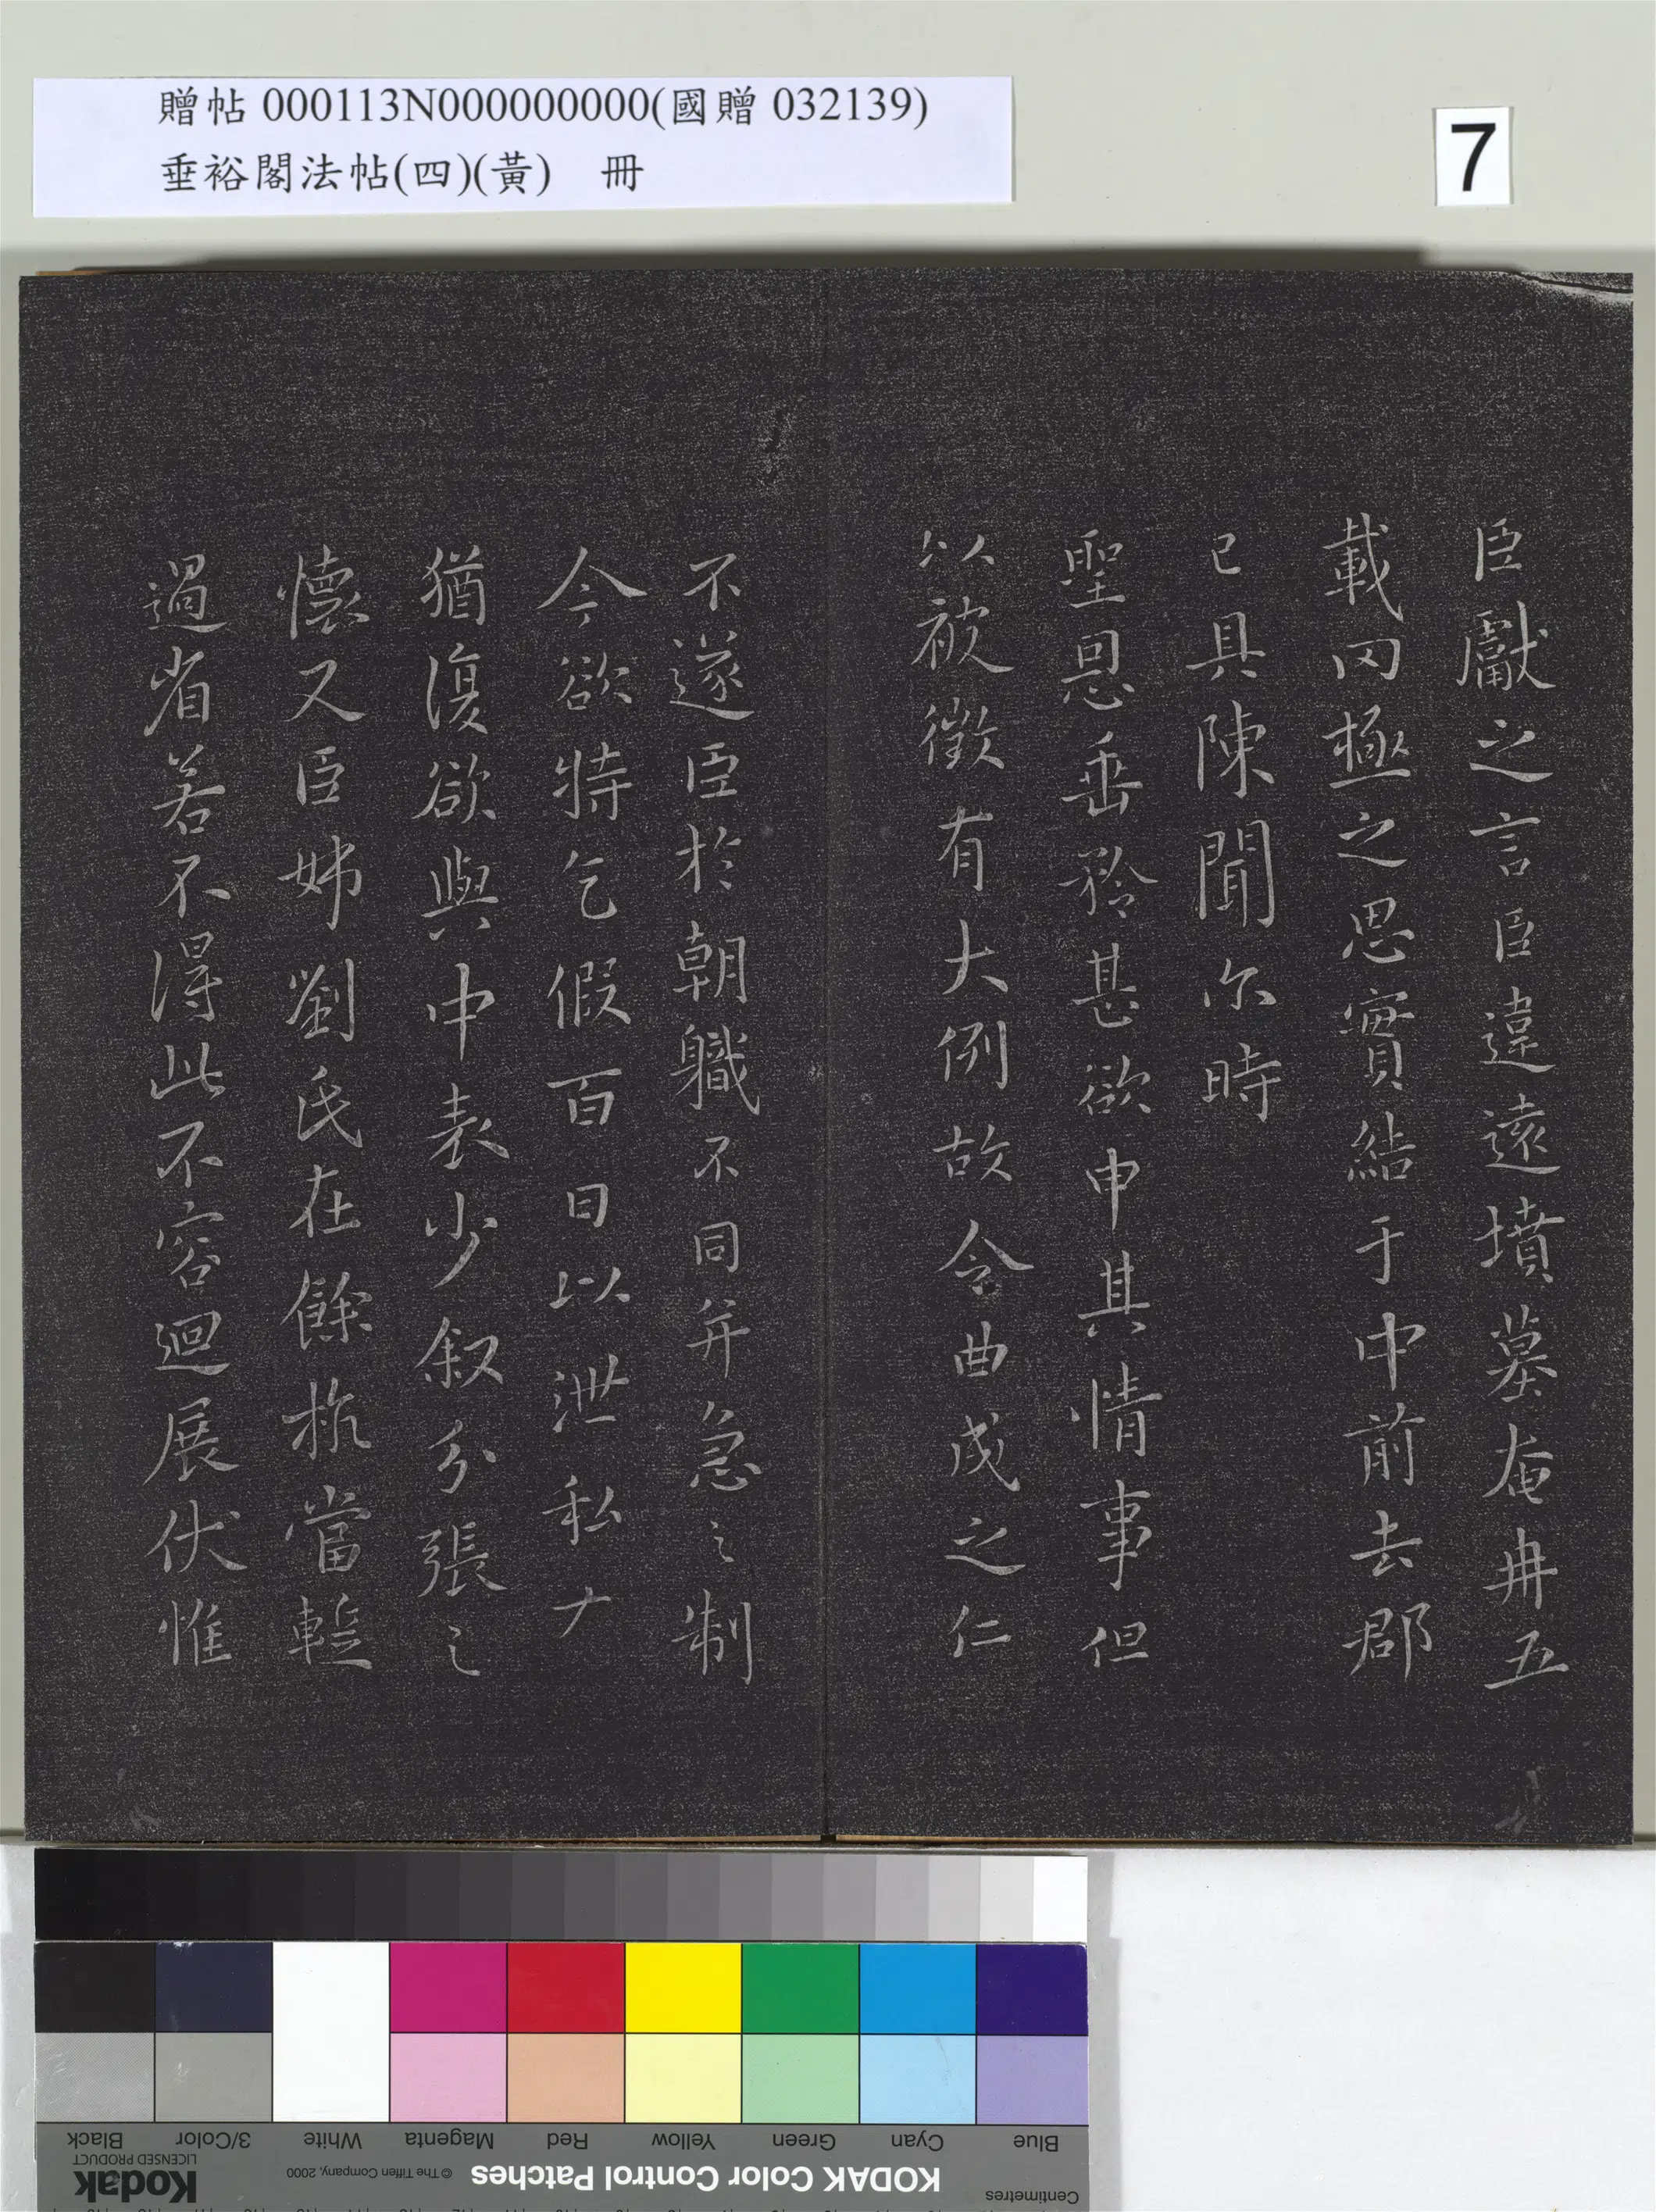 贈帖 000113N000000000(國贈 032139)
垂裕閣法帖(四)(黃) 冊
7
臣獻之言臣違遠墳墓奄冉五
載罔極之思實結于中前去郡
已具陳聞尔時
聖恩垂矜甚欲申其情事但
以被徵有大例故令曲成之仁
不遂臣於朝職不同并急之制
今欲特乞假百日以泄私
猶復欲與中表少叙分張之
懷又臣姊劉氏在餘杭當蹔
過省若不得此不容迴展伏惟
Blue Cyan Green Yellow Red Magenta White 3/Color Black
Centimetres KODAK Color Control Patches © The Tiffen Company, 2000 Kodak
LICENSED PRODUCT